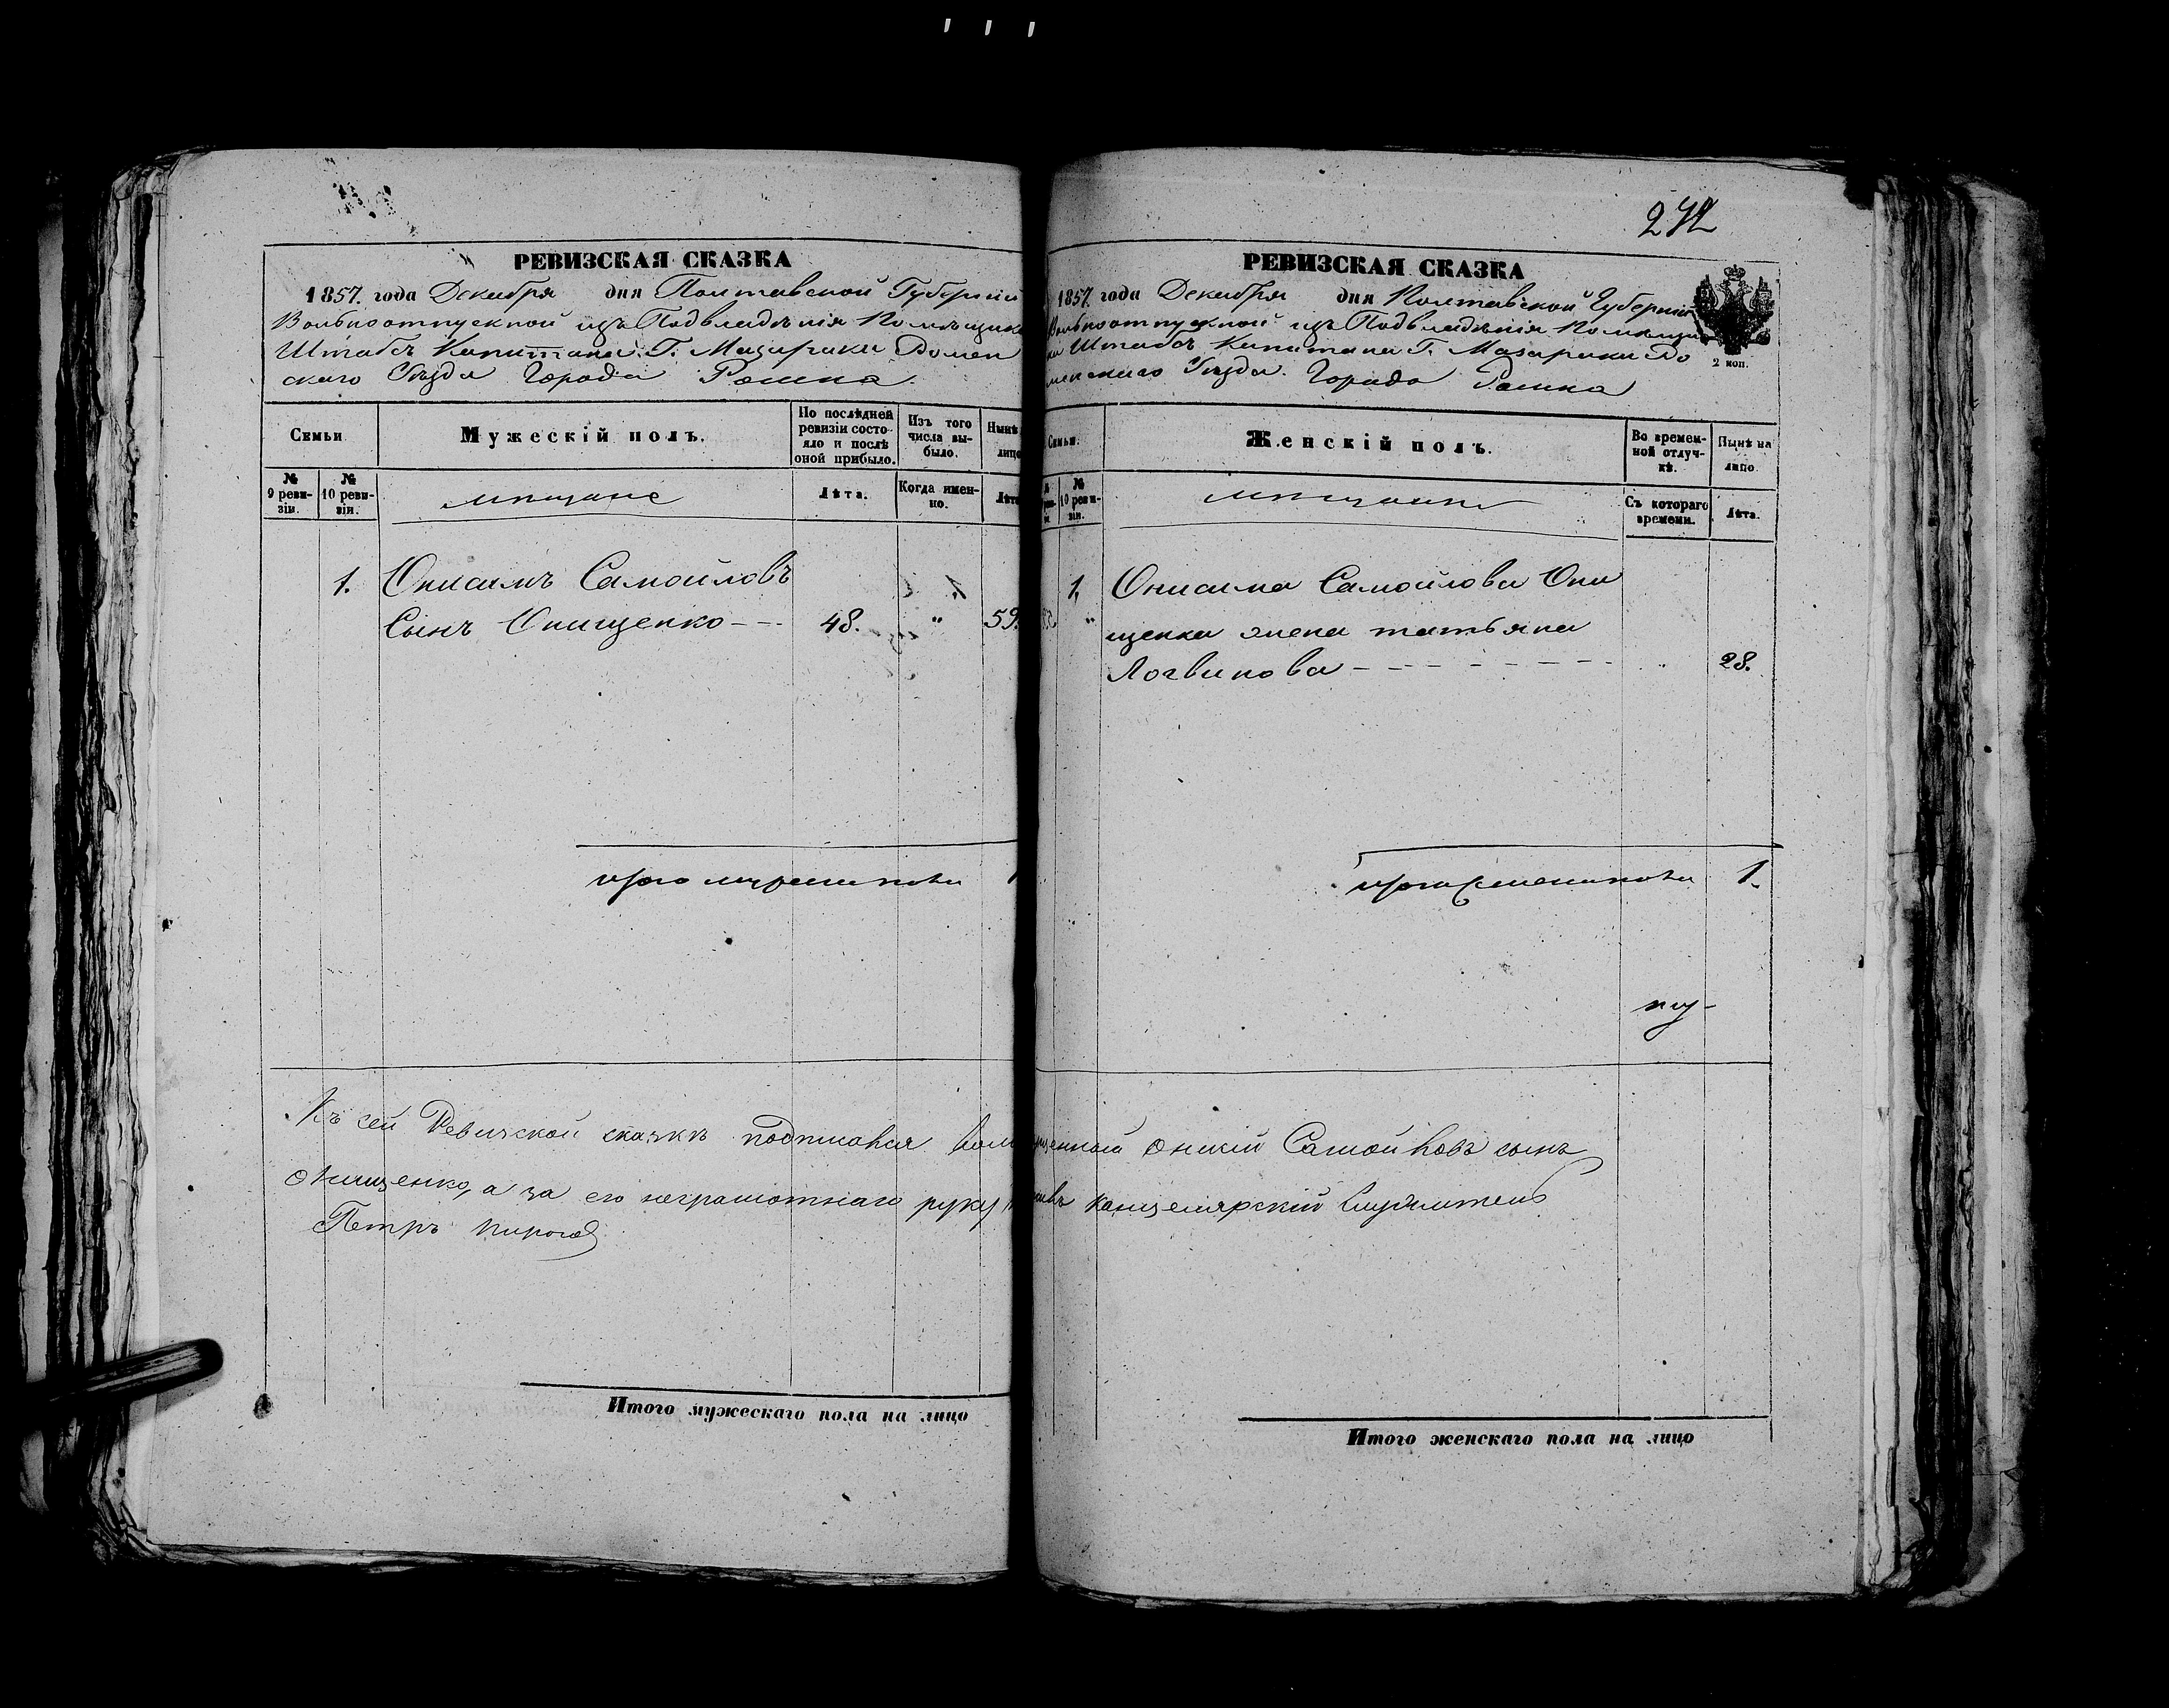 272
РЕВИЗСКАЯ СКАЗКА
1857. года Декабря дня Полтавской Губерніи
Вольноотпускной изъ Подвладѣнія Помѣщика
Штабсъ Капитана Г. Мазараки Ромен
скаго Уѣзда Города Ромна.
Семьи
Мужескій полъ.
По послѣдней ревизіи состояло и послѣ оной прибыло.
Изъ того числа выбыло.
Нынѣ
лицо
№ 9 ревизіи.
№ 10 ревизіи.
мѣщане
Лѣта.
Когда именно.
Лѣта
1. Онисимъ Самойловъ
Сынъ Онищенко --- 48. " 59.
итого мужеска пола 1
Къ сей Ревизской сказкѣ подписался
Онищенко, а за его неграмотнаго руку
Петръ
Итого мужескаго пола на лицо
РЕВИЗСКАЯ СКАЗКА
1857. года Декабря дня Полтавской Губерніи
Вольноотпускной изъ Подвладѣнія Помѣщи
ка Штабсъ Капитана Г. Мазараки Ро
менскаго Уѣзда. Города Ромна
2 коп.
Семьи.
Женскій полъ.
Во временной отлучкѣ.
Нынѣ на лицо.
№ 10 ревизіи.
мѣщанки
Съ котораго времени.
Лѣта.
1. Онисима Самойлова Они
" щенка жена татьяна
Логвинова - - - - - - - - " 28.
итого женска пола 1.
Онисій Самойловъ сынъ
канцелярскій Служитель
Итого женскаго пола на лицо